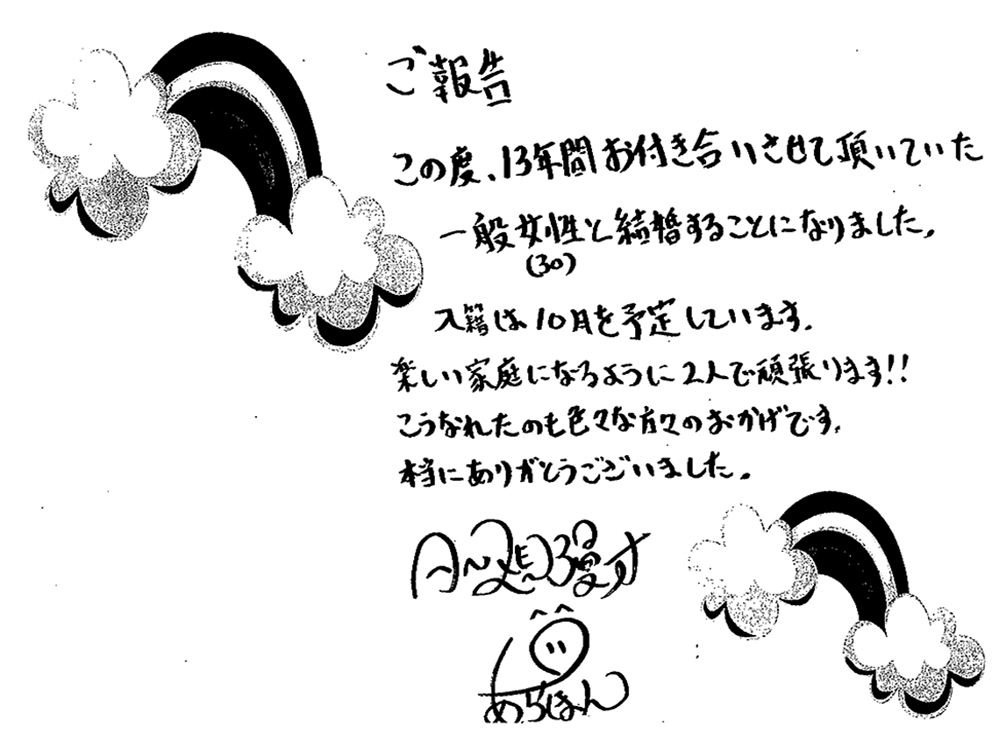 ご報告
この度、13年間お付き合いさせて頂いていた
一般女性と結婚することになりました。
(30)
入籍は10月を予定しています。
楽しい家庭になるように2人で頑張ります!!
こうなれたのも色々な方々のおかげです。
本当にありがとうございました。
あらぽん